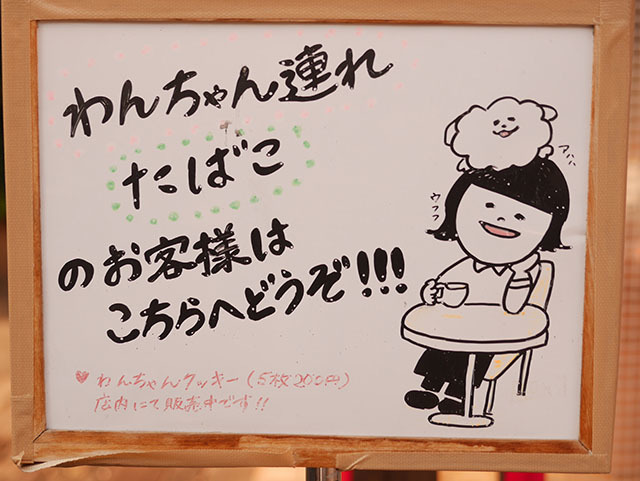 わんちゃん連れ
たばこ
のお客様は
こちらへどうぞ!!!
アハハ
ウフフ
♥わんちゃんクッキー(5枚200円)
店内にて販売中です!!